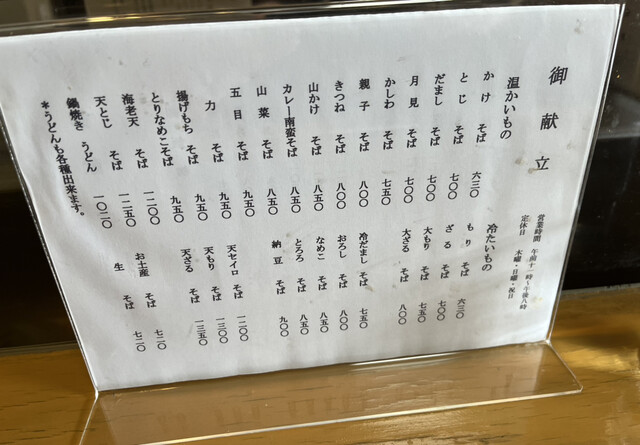 御献立
営業時間 午前十一時~午後八時
定休日 木曜・日曜・祝日
温かいもの
かけ そば 六三〇
とじ そば 七〇〇
だまし そば 七〇〇
月見 そば 七〇〇
かしわ そば 七五〇
親子 そば 八〇〇
きつね そば 八〇〇
山かけ そば 八五〇
カレー南蛮そば 八五〇
山菜 そば 八五〇
五目 そば 九五〇
力 そば 九五〇
揚げもち そば 九五〇
とりなめこそば 九五〇
海老天 そば 一二〇〇
天とじ そば 一二五〇
鍋焼き うどん 一〇二〇
*うどんも各種出来ます。
冷たいもの
もり そば 六三〇
ざる そば 七〇〇
大もり そば 七五〇
大ざる そば 八〇〇
冷だまし そば 七五〇
おろし そば 八〇〇
なめこ そば 八五〇
とろろ そば 八五〇
納豆 そば 九〇〇
天セイロ そば 一二〇〇
天もり そば 一三〇〇
天ざる そば 一三五〇
お土産 そば 七二〇
生 そば 七二〇